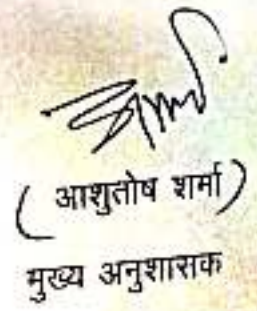 ( आशुतोष शर्मा )
मुख्य अनुशासक